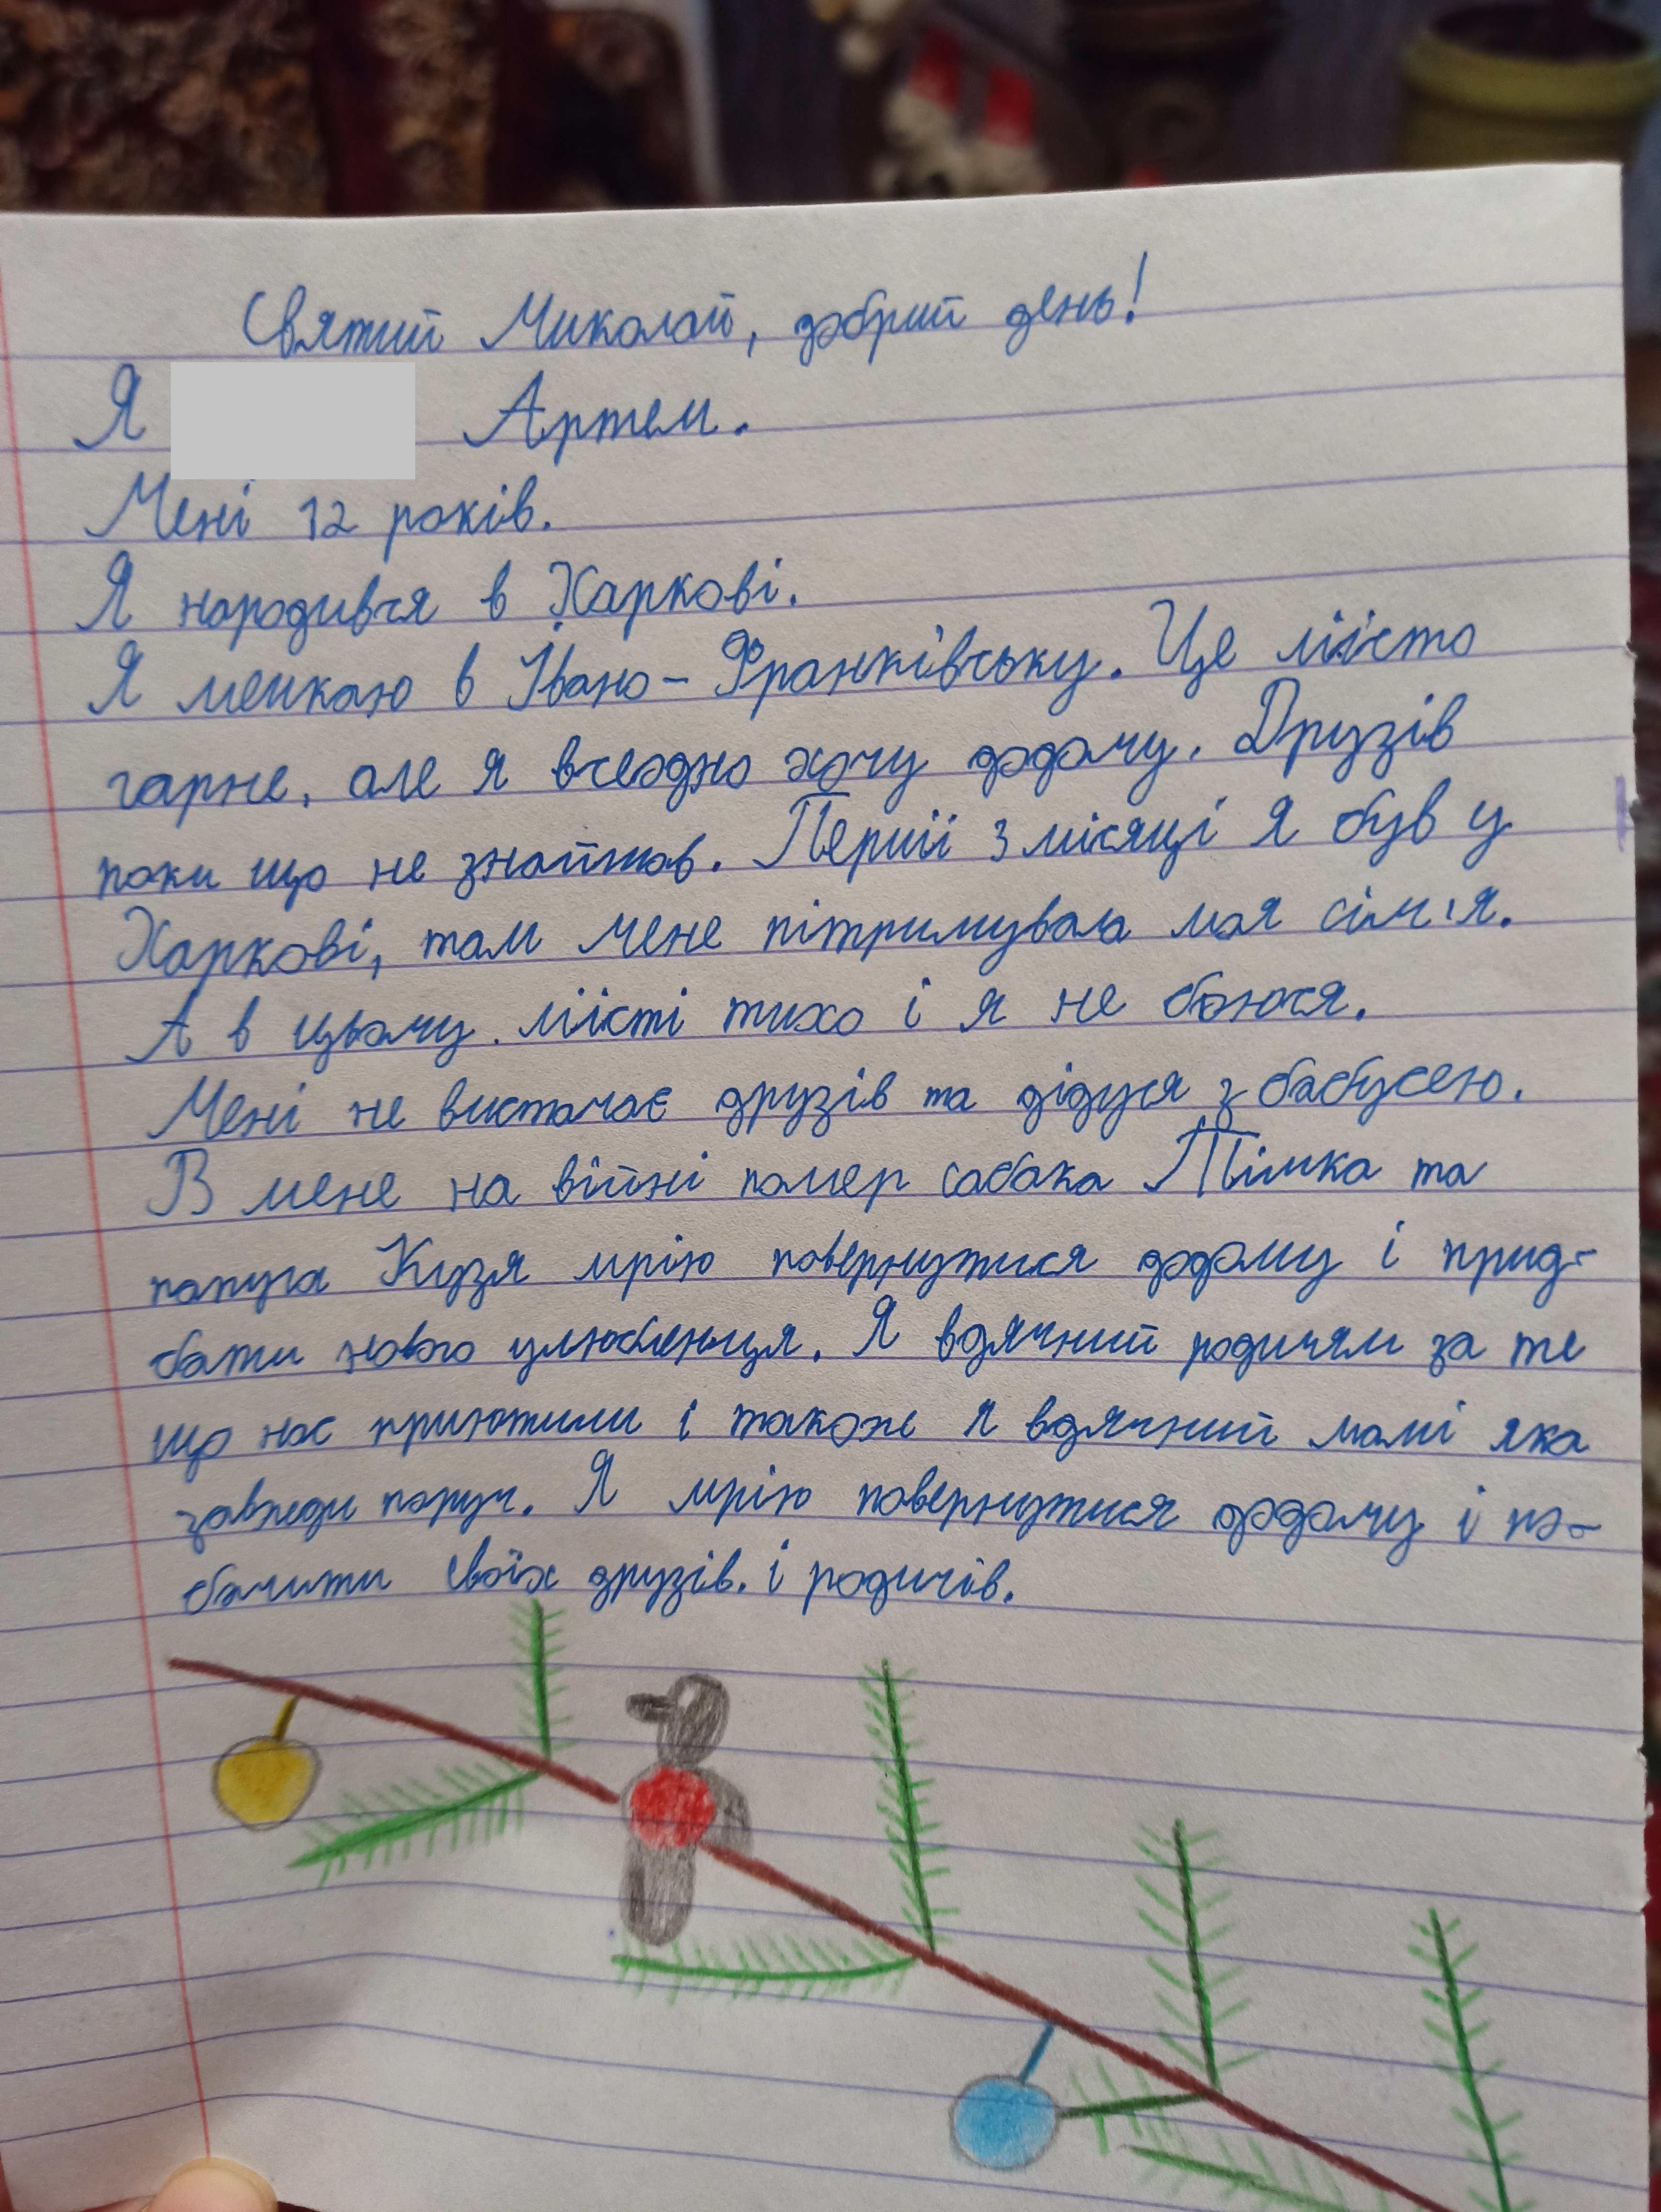 Святий Миколай, добрий день!
Я Артем.
Мені 12 років.
Я народився в Харкові.
Я мешкаю в Івано-Франківську. Це місто
гарне, але я всеодно хочу додому. Друзів
поки що не знайшов. Перші 3 місяці я був у
Харкові, там мене пітримувала моя сім'я.
А в цьому місті тихо і я не боюся.
Мені не вистачає друзів та дідуся з бабусею.
В мене на війні помер собака Тімка та
папуга Кузя мрію повернутися додому і прид-
бати нового улюбленця. Я вдячний родичям за те
що нас приютили і також я вдячний мамі яка
завжди поруч. Я мрію повернутися додому і по-
бачити своїх друзів. і родичів.